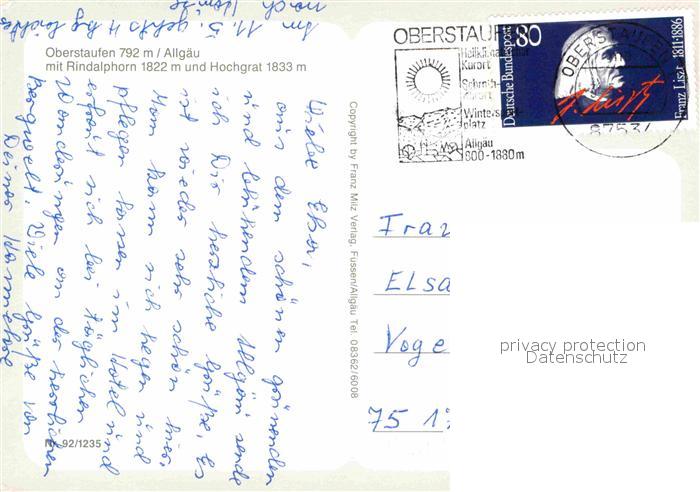 Oberstaufen 792 m / Allgäu
mit Rindalphorn 1822 m und Hochgrat 1833 m
OBERSTAUFEN
Heilklimatischer
Kurort
Schroth-
kurort
Wintersport-
platz
Allgäu
800-1880 m
80
Deutsche Bundespost
Franz Liszt 1811-1886
F. Liszt
OBERSTAUFEN
8753
Liebe Elsa,
aus dem schönen grünenden
und blühenden Allgäu sende
ich Dir herzliche Grüße. Es
ist wieder sehr schön hier.
Man kann sich hegen und
pflegen lassen im Hotel und
erfreut sich bei täglichen
Wanderungen an der herrlichen
Bergwelt. Viele Grüße von
Deiner
Am 11.5. geht's
nach
Copyright by Franz Milz Verlag, Füssen/Allgäu Tel. 08362/6008
Frau
Elsa
Voge
75 1
privacy protection
Datenschutz
Nr. 92/1235